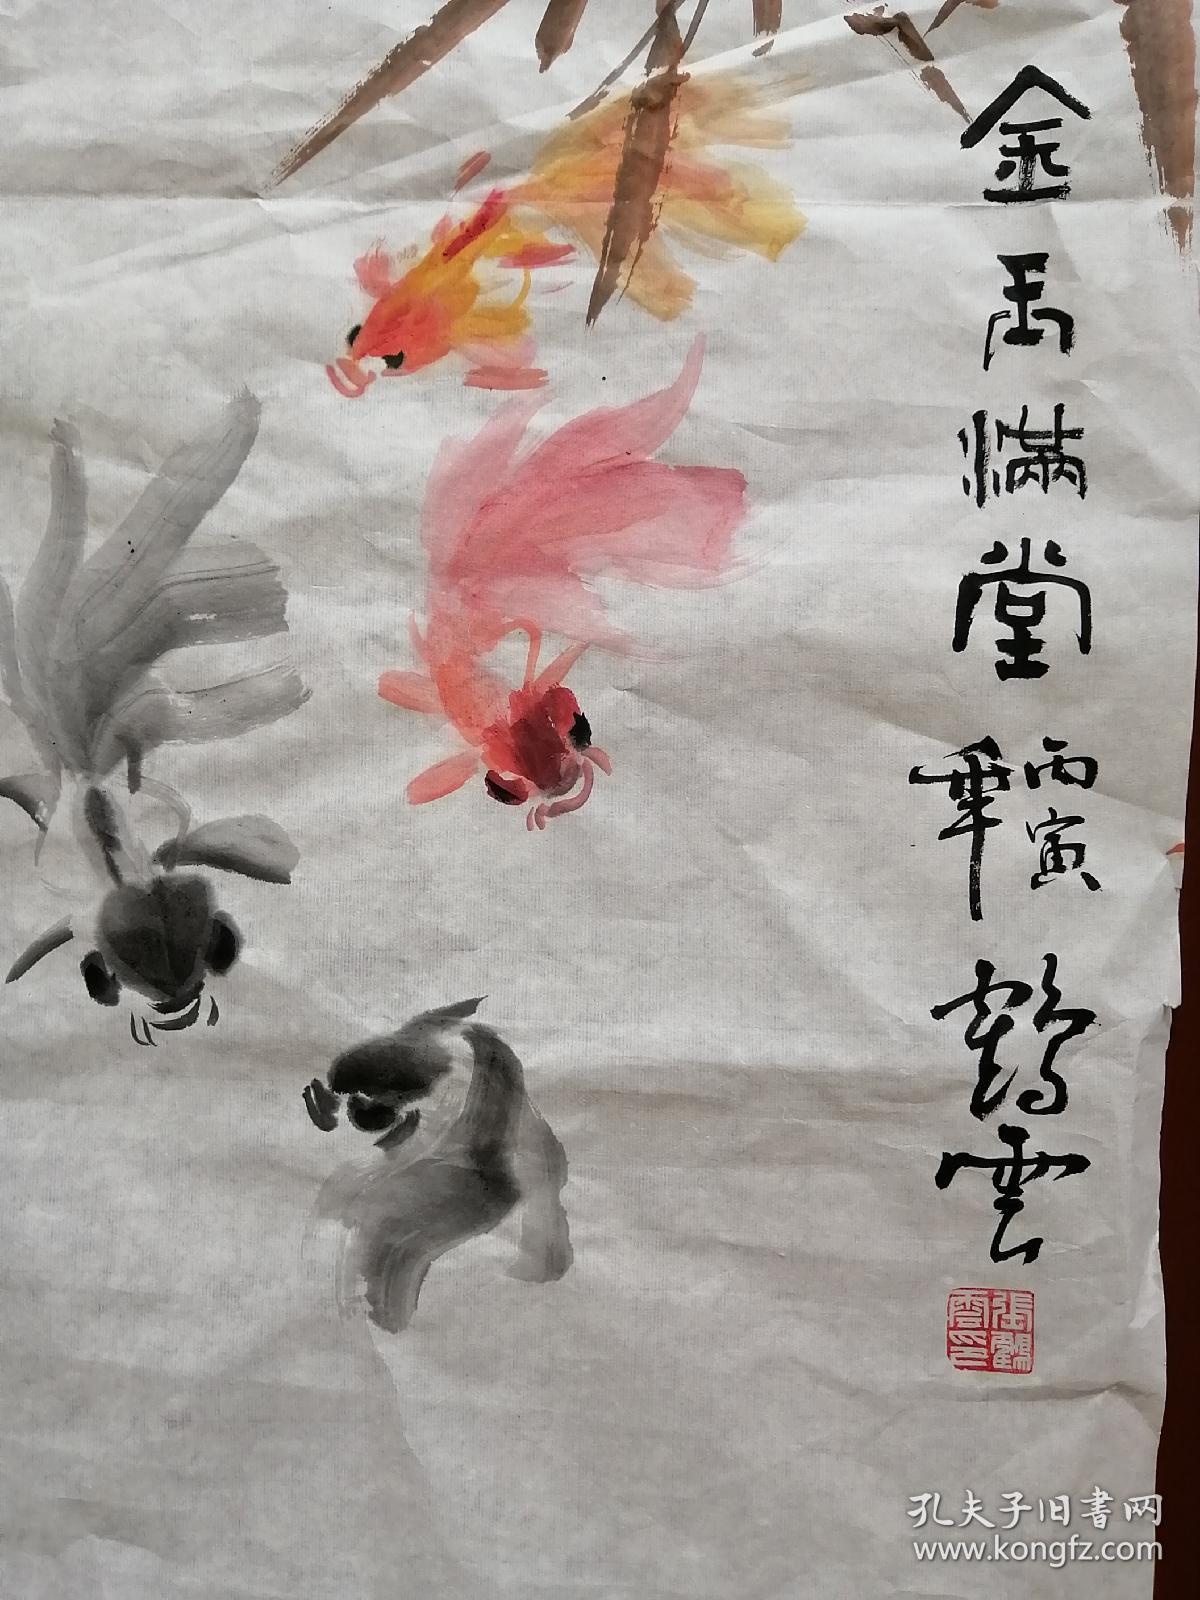 金玉满堂
丙寅
年
鹤雲
张鹤
雲印
孔夫子旧书网
www.kongfz.com